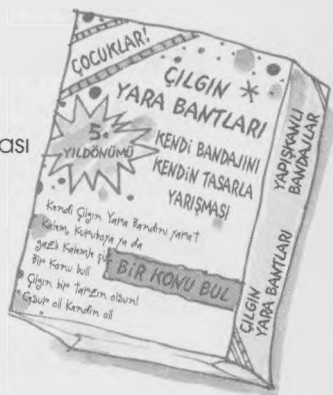 ÇOCUKLAR!
ÇILGIN *
YARA BANTLARI
5.
YILDÖNÜMÜ
KENDİ BANDAJINI
KENDİN TASARLA
YARIŞMASI
Kendi Çılgın Yara Bandını yarat
Kalem, Kuruboya ya da
gazlı Kalemle
Bir Konu bul!
Çılgın bir tarzın olsun!
Cesur ol Kendin ol!
BİR KONU BUL
YAPIŞKANLI
BANDAJLAR
ÇILGIN
YARA BANTLARI
ası